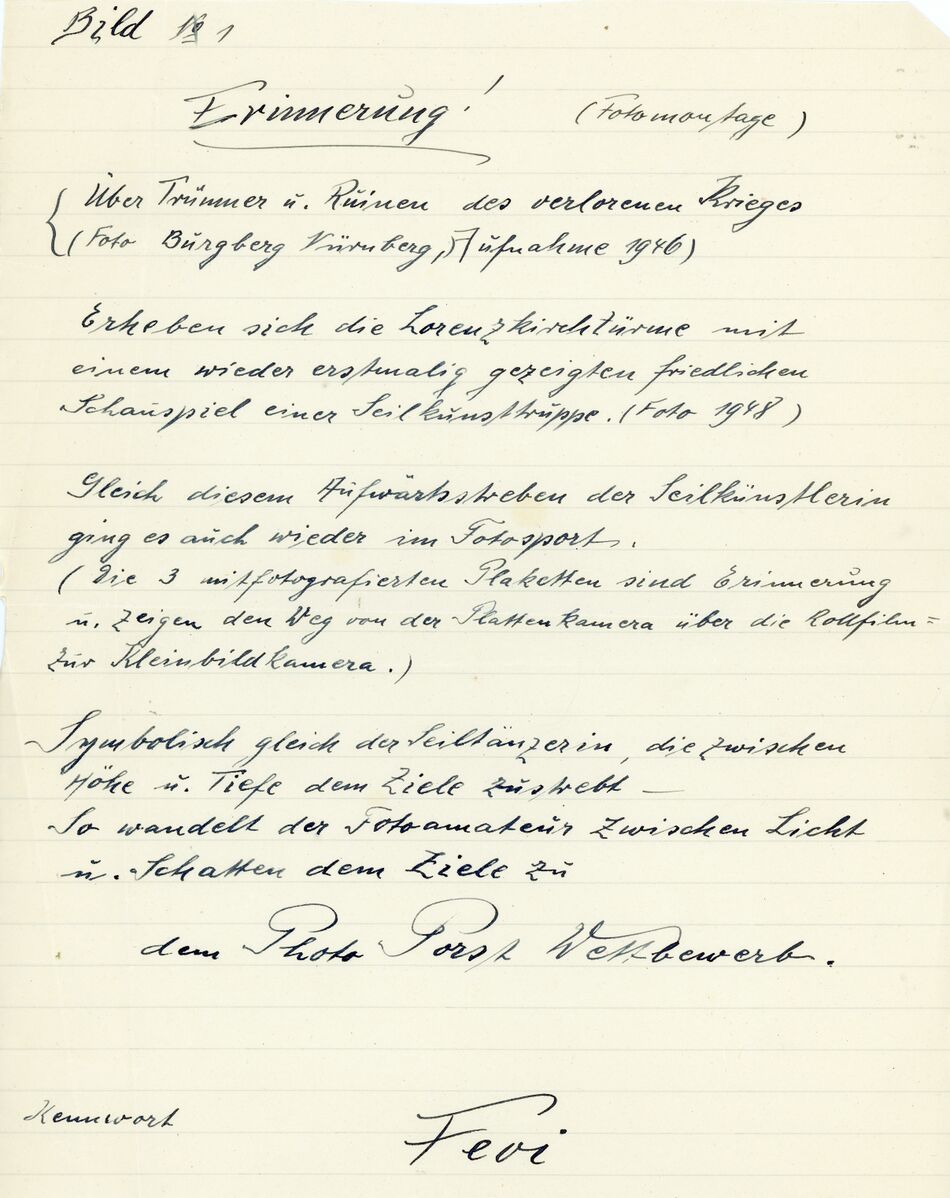 Bild No 1
Erinnerung! (Fotomontage)
Über Trümmer u. Ruinen des verlorenen Krieges
(Foto Burgberg Nürnberg, Aufnahme 1946)
Erheben sich die Lorenzkirchtürme mit
einem wieder erstmalig gezeigten friedlichen
Schauspiel einer Seilkunsttruppe. (Foto 1948)
Gleich diesem Aufwärtsstreben der Seilkünstlerin
ging es auch wieder im Fotosport.
(Die 3 mitfotografierten Plaketten sind Erinnerung
u. zeigen den Weg von der Plattenkamera über die Rollfilm=
zur Kleinbildkamera.)
Symbolisch gleich der Seiltänzerin, die zwischen
Höhe u. Tiefe dem Ziele zustrebt —
So wandelt der Fotoamateur zwischen Licht
u. Schatten dem Ziele zu
dem Photo Porst Wettbewerb.
Kennwort Fevi